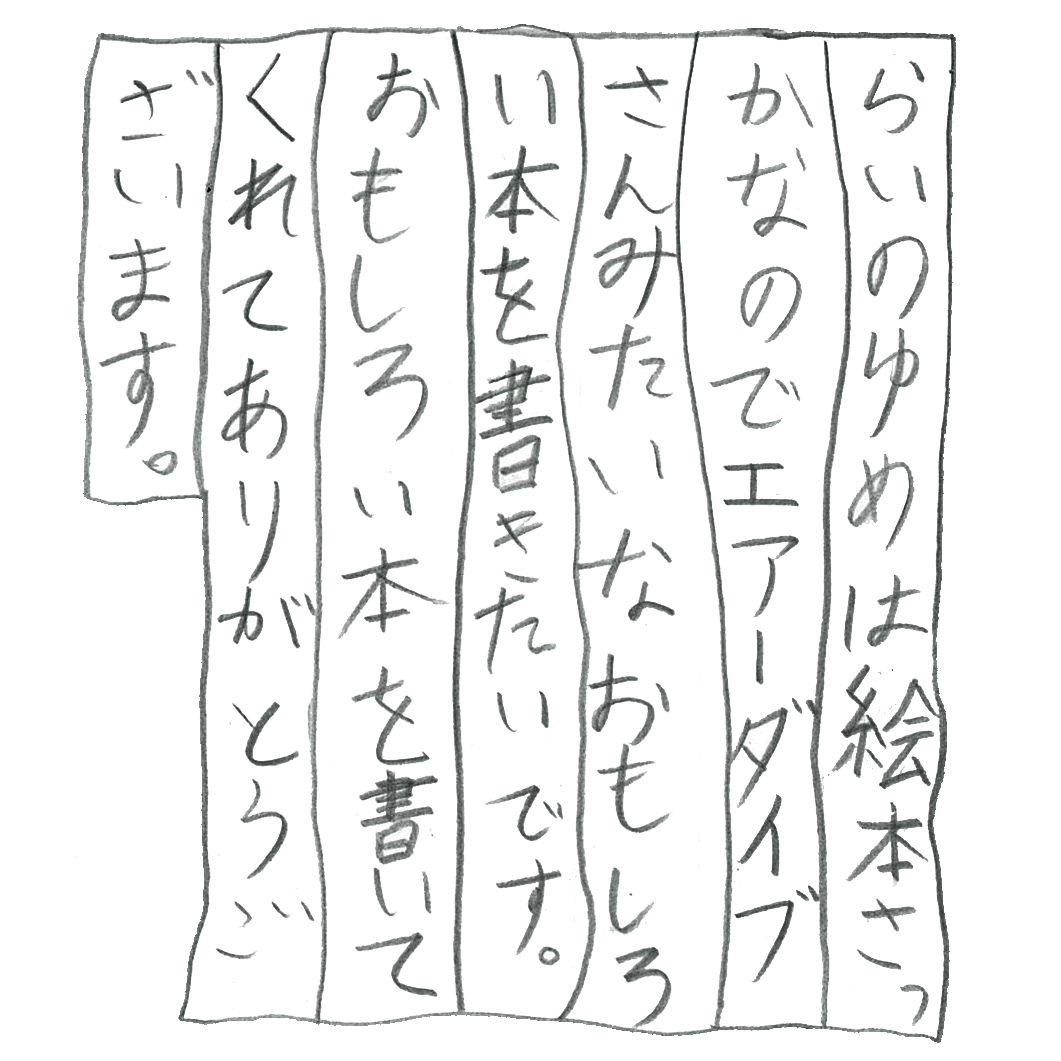 らいのゆめは絵本さっ
かなのでエアーダイブ
さんみたいなおもしろ
い本を書きたいです。
おもしろい本を書いて
くれてありがとうご
ざいます。